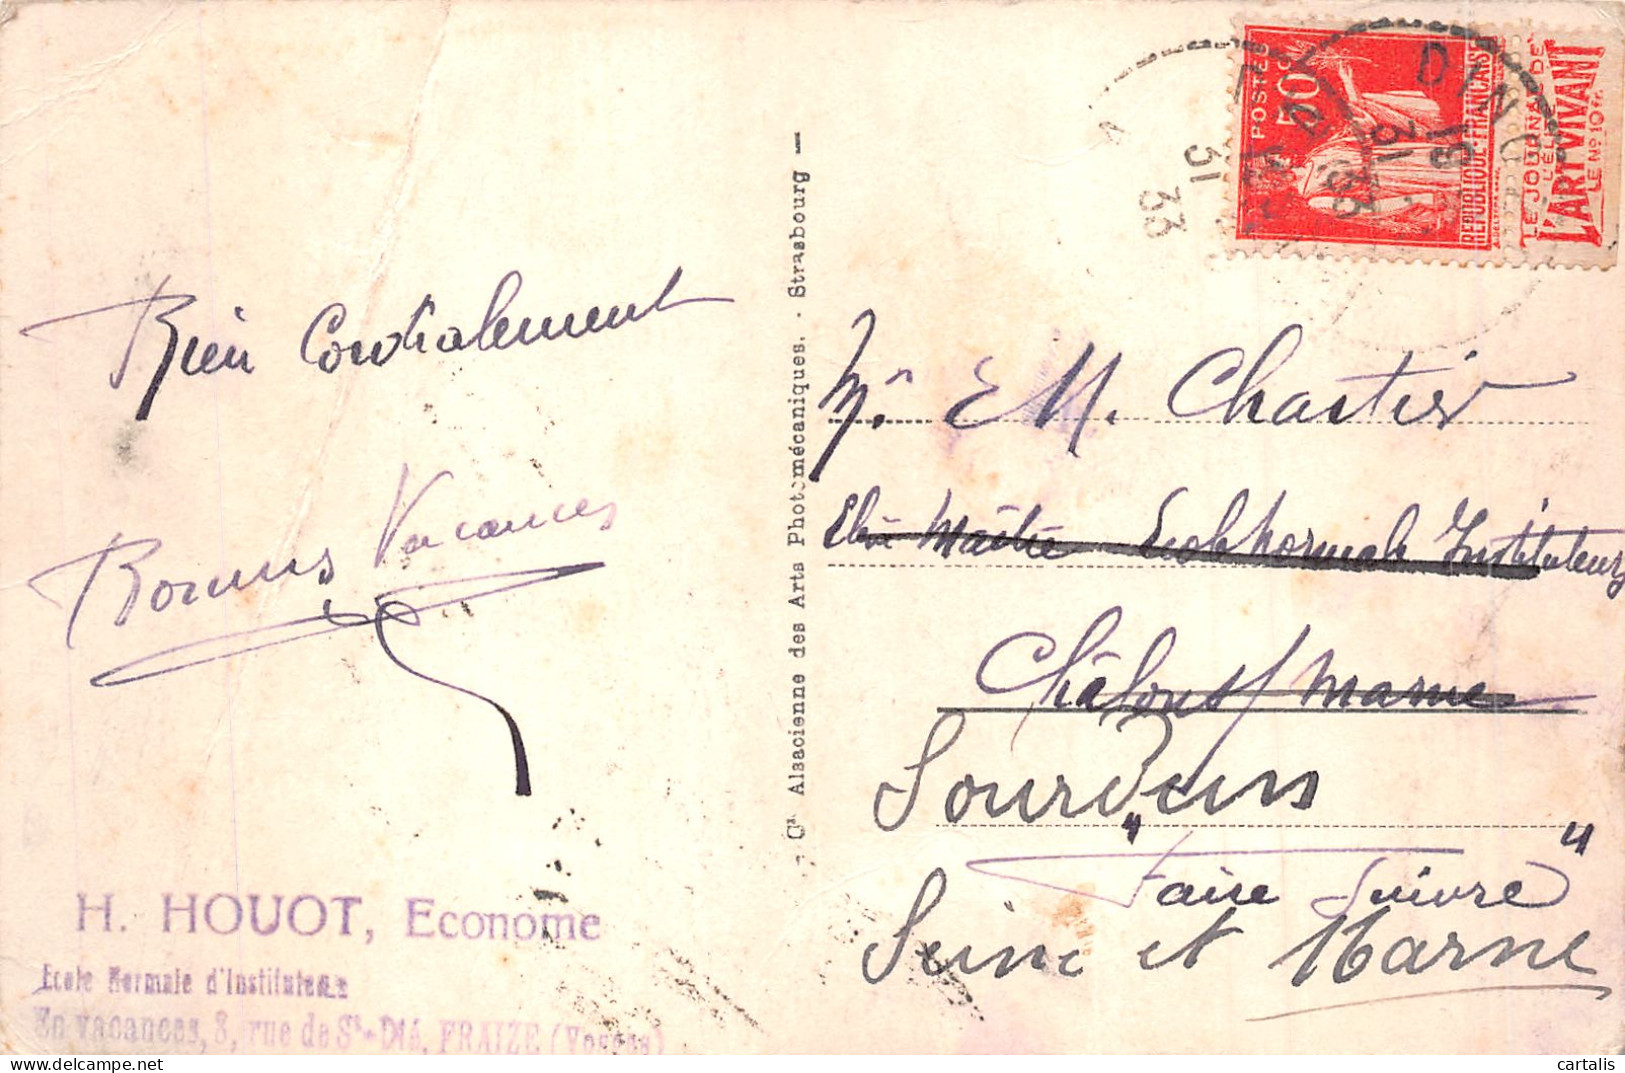 Bien Cordialement
Bonnes Vacances
H. HOUOT, Econome
Ecole Normale d'Instituteurs
En vacances, 8, rue de St-Dié, FRAIZE (Vosges)
- Cie Alsacienne des Arts Photomécaniques. - Strasbourg -
POSTES
50c
REPUBLIQUE·FRANÇAISE
LE JOURNAL DE
L'ÉLITE
L'ART VIVANT
LE No 10 fr.
31
33
Mr. E M. Chartier
Elève Maître Ecole Normale Instituteurs
Châlons s/ Marne
Sourdun
"Faire Suivre"
Seine et Marne
cartalis